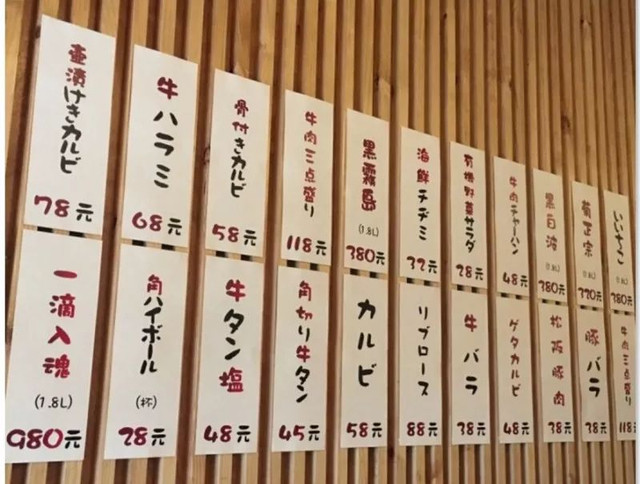 壺漬けきカルビ
78元
牛ハラミ
68元
骨付きカルビ
58元
牛肉三点盛り
118元
黒霧島
(1.8L)
380元
海鮮チヂミ
32元
有機野菜サラダ
28元
牛肉チャーハン
48元
黒白波
(1.8L)
380元
菊正宗
(1.8L)
320元
いいちこ
(1.8L)
380元
一滴入魂
(1.8L)
980元
角ハイボール
(杯)
28元
牛タン塩
48元
角切り牛タン
45元
カルビ
58元
リブロース
88元
牛バラ
38元
ゲタカルビ
48元
松阪豚肉
38元
豚バラ
38元
牛肉三点盛り
118元